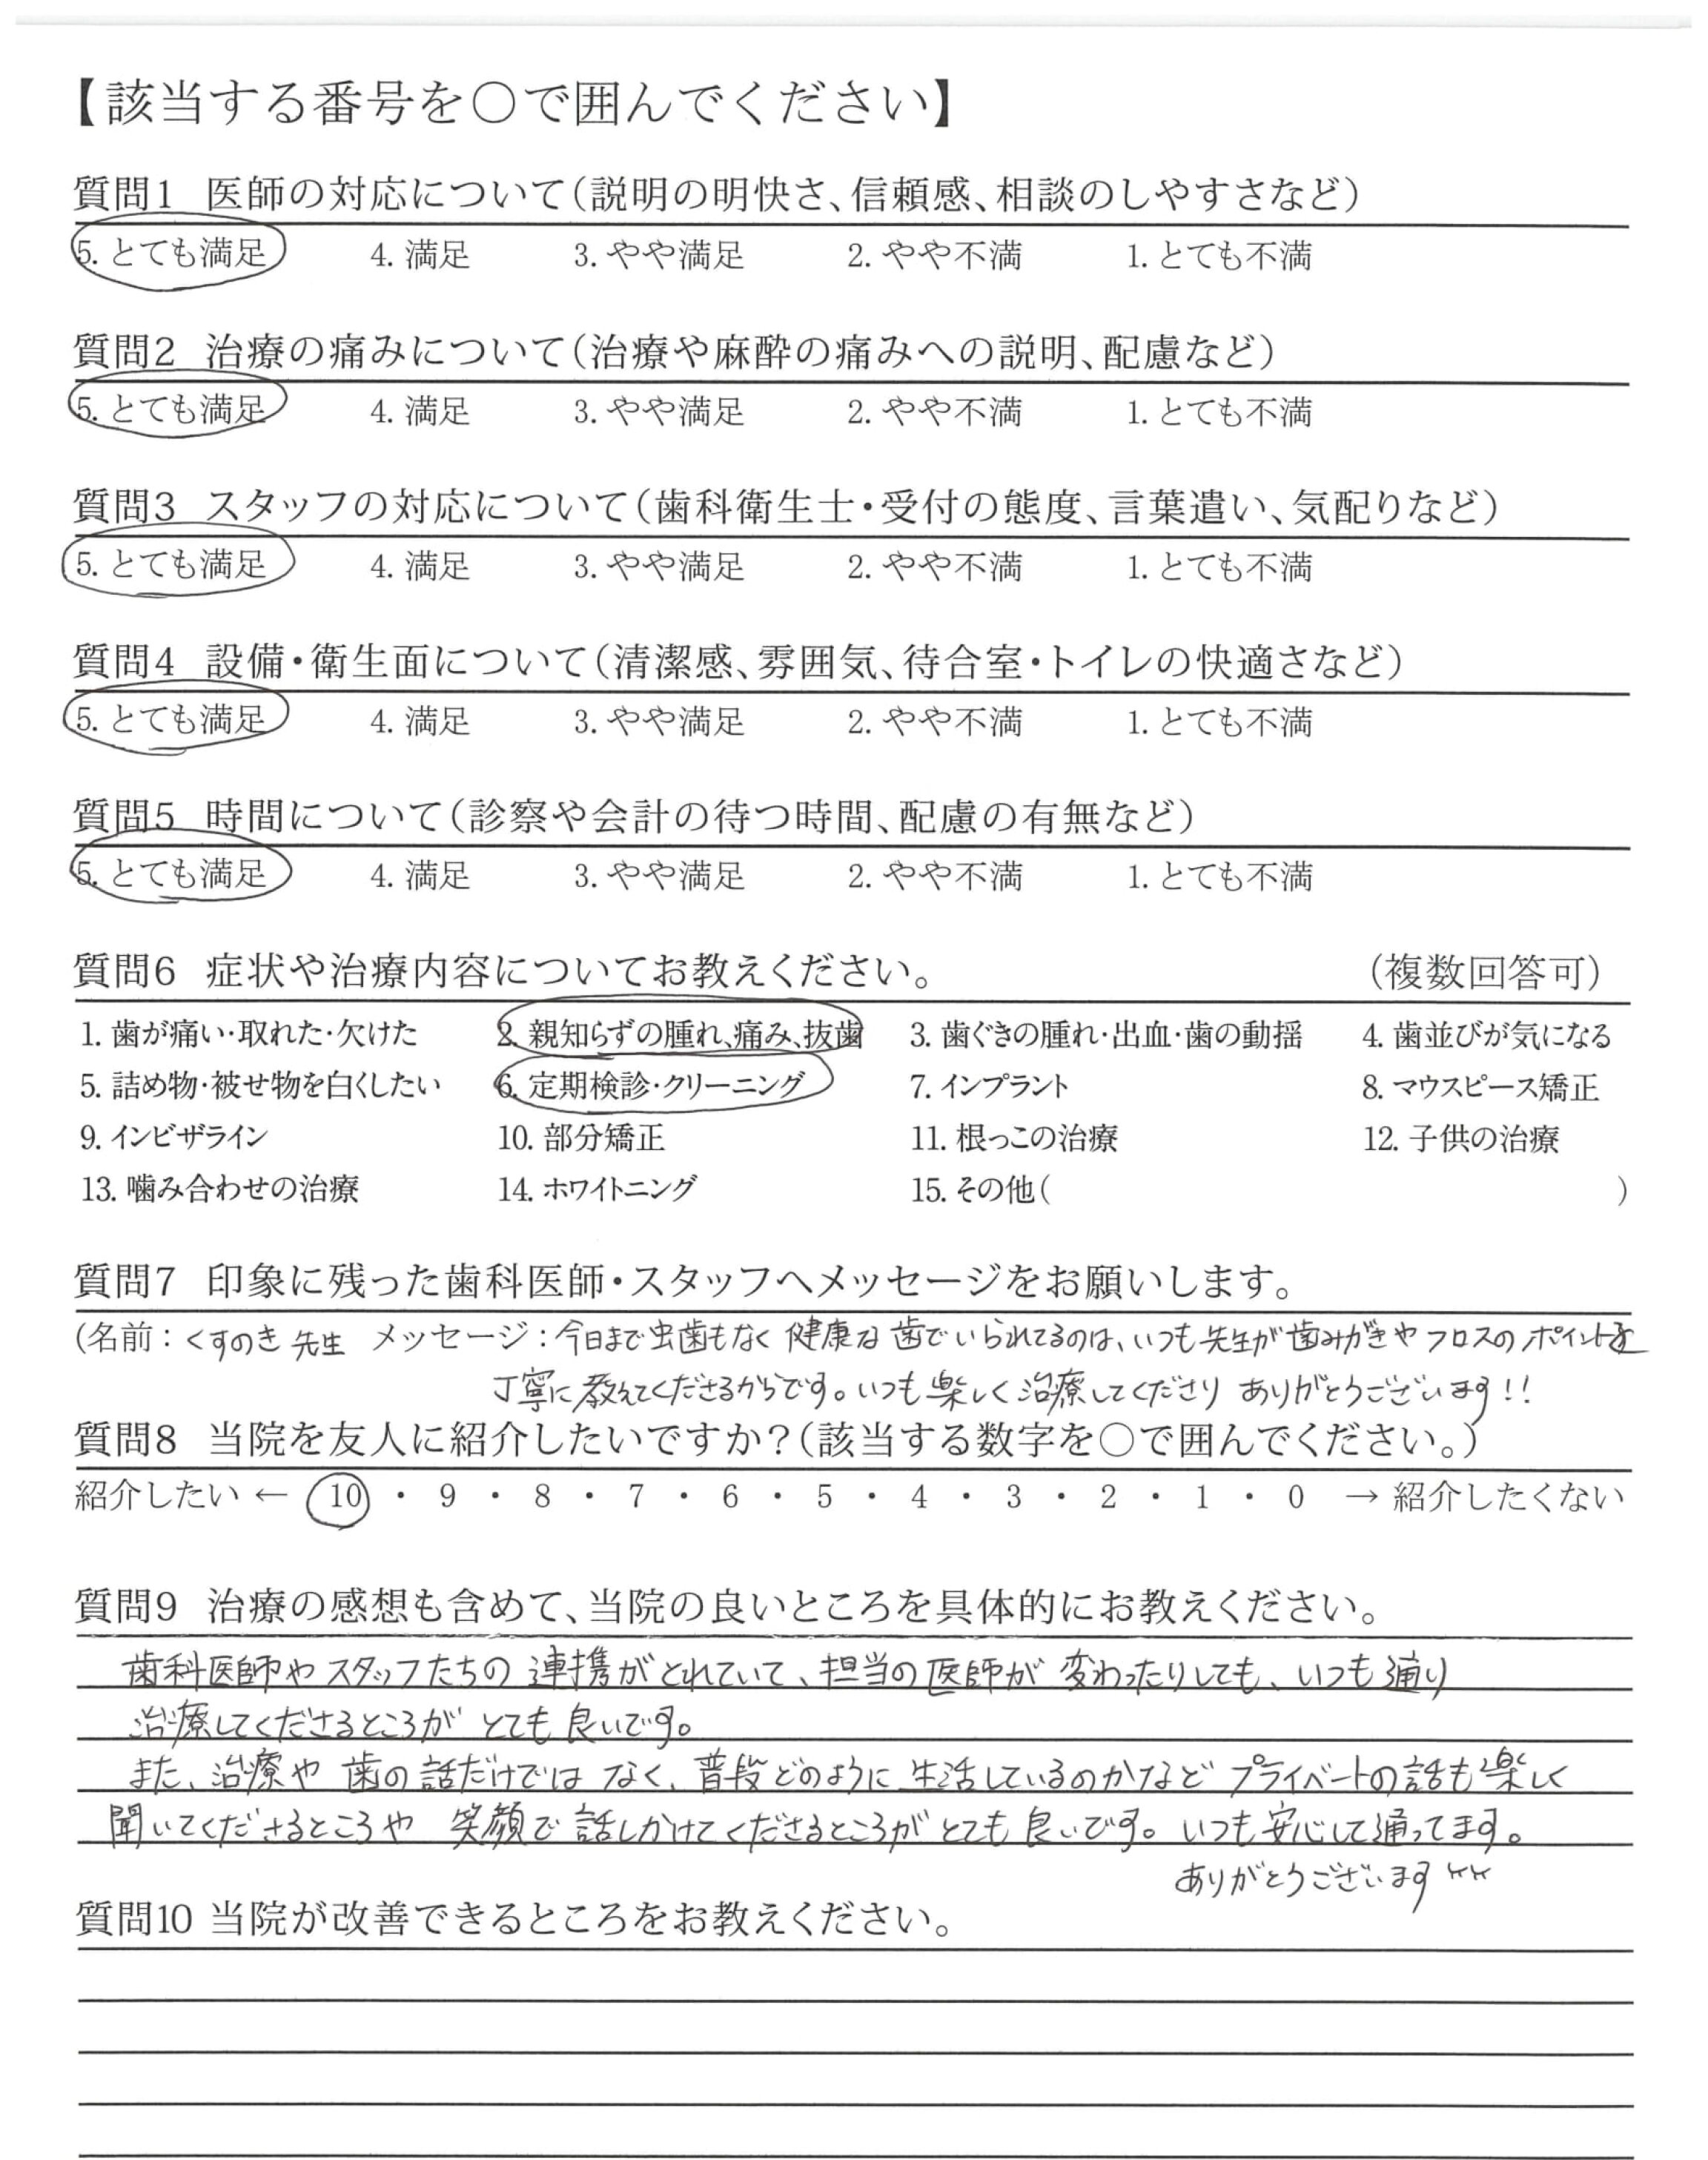 【該当する番号を○で囲んでください】
質問1 医師の対応について(説明の明快さ、信頼感、相談のしやすさなど)
5. とても満足 4. 満足 3. やや満足 2. やや不満 1. とても不満
質問2 治療の痛みについて(治療や麻酔の痛みへの説明、配慮など)
5. とても満足 4. 満足 3. やや満足 2. やや不満 1. とても不満
質問3 スタッフの対応について(歯科衛生士・受付の態度、言葉遣い、気配りなど)
5. とても満足 4. 満足 3. やや満足 2. やや不満 1. とても不満
質問4 設備・衛生面について(清潔感、雰囲気、待合室・トイレの快適さなど)
5. とても満足 4. 満足 3. やや満足 2. やや不満 1. とても不満
質問5 時間について(診察や会計の待つ時間、配慮の有無など)
5. とても満足 4. 満足 3. やや満足 2. やや不満 1. とても不満
質問6 症状や治療内容についてお教えください。 (複数回答可)
1. 歯が痛い・取れた・欠けた 2. 親知らずの腫れ、痛み、抜歯 3. 歯ぐきの腫れ・出血・歯の動揺 4. 歯並びが気になる
5. 詰め物・被せ物を白くしたい 6. 定期検診・クリーニング 7. インプラント 8. マウスピース矯正
9. インビザライン 10. 部分矯正 11. 根っこの治療 12. 子供の治療
13. 噛み合わせの治療 14. ホワイトニング 15. その他( )
質問7 印象に残った歯科医師・スタッフへメッセージをお願いします。
(名前:くすのき 先生 メッセージ:今日まで虫歯もなく 健康な 歯でいられてるのは、いつも先生が歯みがきやフロスのポイントを
丁寧に教えてくださるからです。いつも楽しく治療してくださり ありがとうございます!!
質問8 当院を友人に紹介したいですか?(該当する数字を○で囲んでください。)
紹介したい ← 10 ・ 9 ・ 8 ・ 7 ・ 6 ・ 5 ・ 4 ・ 3 ・ 2 ・ 1 ・ 0 → 紹介したくない
質問9 治療の感想も含めて、当院の良いところを具体的にお教えください。
歯科医師やスタッフたちの連携がとれていて、担当の医師が変わったりしても、いつも通り
治療してくださるところがとても良いです。
また、治療や歯の話だけではなく、普段どのように生活しているのかなどプライベートの話も楽しく
聞いてくださるところや 笑顔で話しかけてくださるところがとても良いです。いつも安心して通ってます。
ありがとうございます^^
質問10 当院が改善できるところをお教えください。